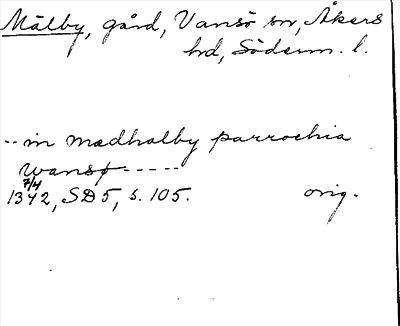 Mälby, gård, Vansö sn, Åkers
hd, Söderm. l.
-- in mædhalby parrochia
wansø -----
7/4
1342, SD 5, s. 105. orig.